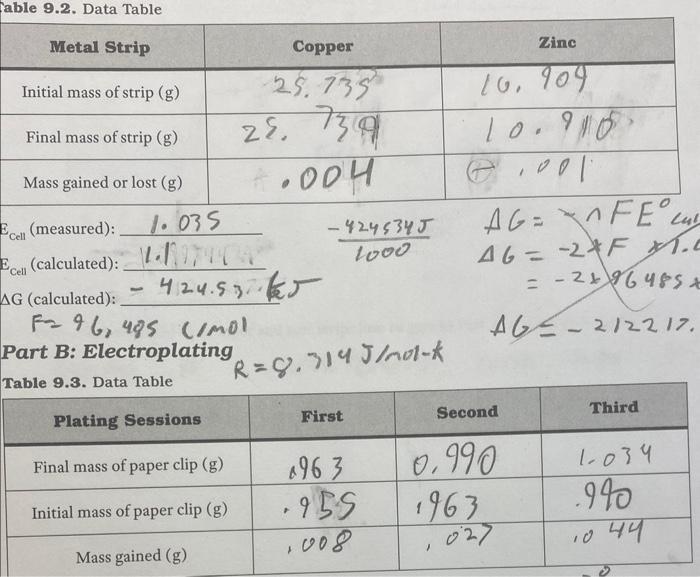 able 9.2. Data Table
Metal Strip Copper Zinc
Initial mass of strip (g) 25.735 10.909
Final mass of strip (g) 25.739 10.910
Mass gained or lost (g) .004 + .001
E Cell (measured): 1.035
-424534J
1000
ΔG = -nFE°
E Cell (calculated):
ΔG = -2*F
= -2*96485*
ΔG (calculated): -424.53 kJ
F= 96,485 C/mol
ΔG = -212217.
Part B: Electroplating
R=8.314 J/mol-k
Table 9.3. Data Table
Plating Sessions First Second Third
Final mass of paper clip (g) .963 0.990 1.034
Initial mass of paper clip (g) .955 .963 .990
Mass gained (g) .008 .027 .044